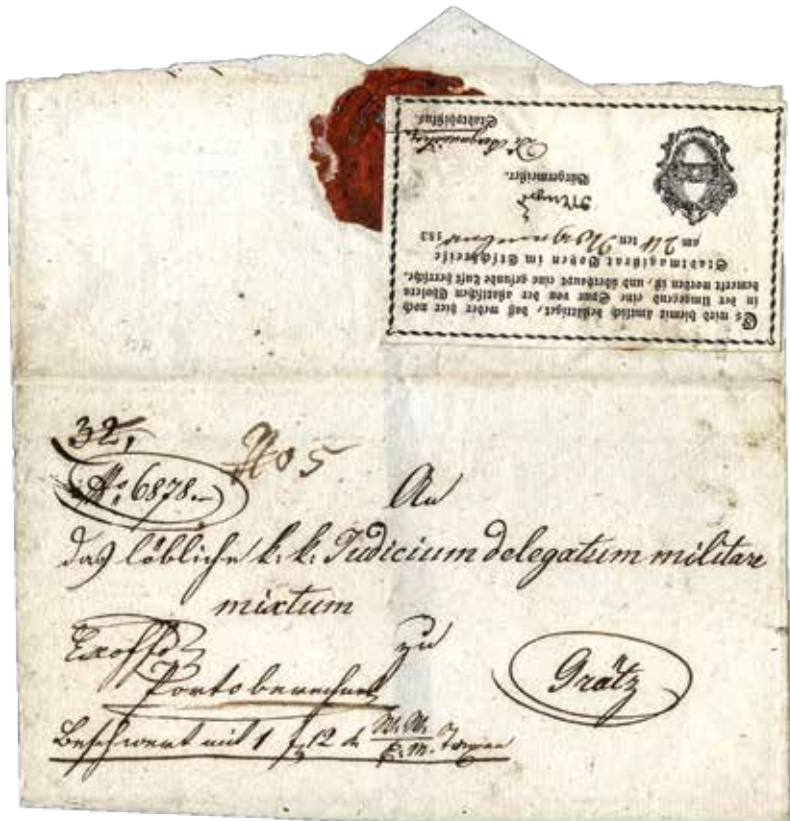 Es wird hiemit ämtlich bestättiget, daß weder hier noch
in der Umgegend eine Spur von der asiatischen Cholera
bemerkt worden ist, und überhaupt eine gesunde Luft herrsche.
Stadtmagistrat Botzen im Etschkreise
am 24 ten 183
Bürgermeister.
Stadtphisikus.
32,
No 6878.
No 5
An
das löbliche k: k: Iudicium delegatum militare
mixtum
Exoffo
zu
Grätz
Porto
Beschwert mit 1 f 12